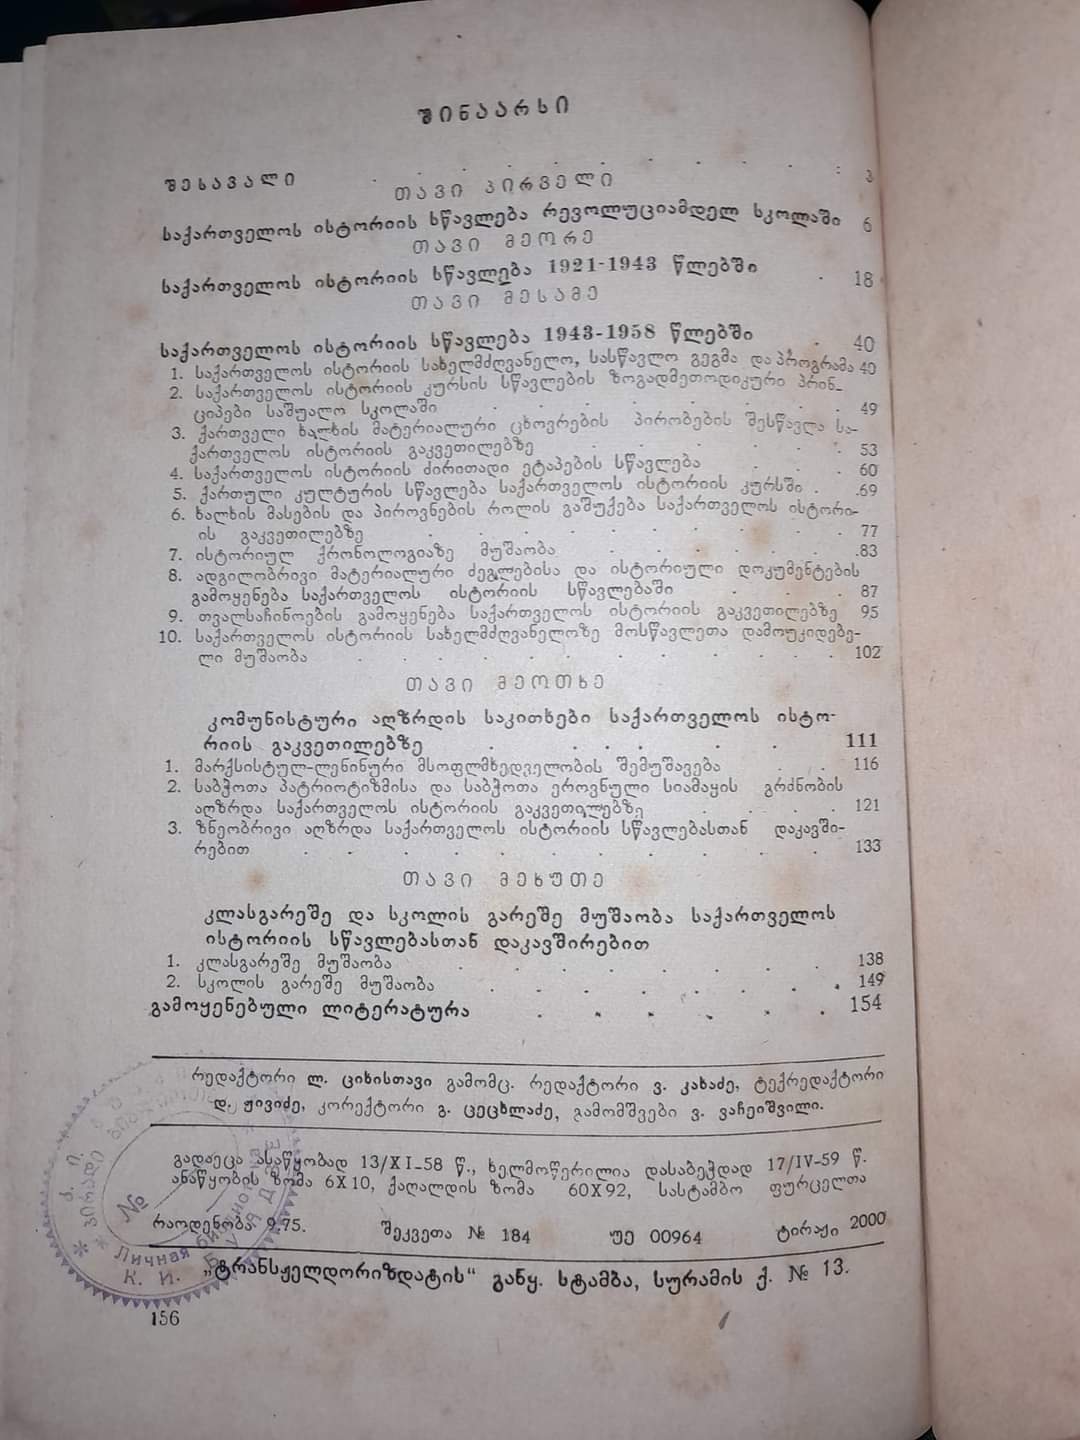 შინაარსი
შესავალი . . . . . . . . . . 3
თავი პირველი
საქართველოს ისტორიის სწავლება რევოლუციამდელ სკოლაში 6
თავი მეორე
საქართველოს ისტორიის სწავლება 1921-1943 წლებში . 18
თავი მესამე
საქართველოს ისტორიის სწავლება 1943-1958 წლებში . 40
1. საქართველოს ისტორიის სახელმძღვანელო, სასწავლო გეგმა და პროგრამა 40
2. საქართველოს ისტორიის კურსის სწავლების ზოგადმეთოდიკური პრინ-
ციპები საშუალო სკოლაში . . . . . . . . 49
3. ქართველი ხალხის მატერიალური ცხოვრების პირობების შესწავლა სა-
ქართველოს ისტორიის გაკვეთილებზე . . . . . . 53
4. საქართველოს ისტორიის ძირითადი ეტაპების სწავლება . . . 60
5. ქართული კულტურის სწავლება საქართველოს ისტორიის კურსში . .69
6. ხალხის მასების და პიროვნების როლის გაშუქება საქართველოს ისტორი-
ის გაკვეთილებზე . . . . . . . . 77
7. ისტორიულ ქრონოლოგიაზე მუშაობა . . . . . . .83
8. ადგილობრივი მატერიალური ძეგლებისა და ისტორიული დოკუმენტების
გამოყენება საქართველოს ისტორიის სწავლებაში . . . 87
9. თვალსაჩინოების გამოყენება საქართველოს ისტორიის გაკვეთილებზე 95
10. საქართველოს ისტორიის სახელმძღვანელოზე მოსწავლეთა დამოუკიდებე-
ლი მუშაობა . . . . . . . . . . 102
თავი მეოთხე
კომუნისტური აღზრდის საკითხები საქართველოს ისტო-
რიის გაკვეთილებზე . . . . . . 111
1. მარქსისტულ-ლენინური მსოფლმხედველობის შემუშავება . . 116
2. საბჭოთა პატრიოტიზმისა და საბჭოთა ეროვნული სიამაყის გრძნობის
აღზრდა საქართველოს ისტორიის გაკვეთილებზე . . . . 121
3. ზნეობრივი აღზრდა საქართველოს ისტორიის სწავლებასთან დაკავში-
რებით . . . . . . . . . . . 133
თავი მეხუთე
კლასგარეშე და სკოლის გარეშე მუშაობა საქართველოს
ისტორიის სწავლებასთან დაკავშირებით
1. კლასგარეშე მუშაობა . . . . . . . . 138
2. სკოლის გარეშე მუშაობა . . . . . . . . 149
გამოყენებული ლიტერატურა . . . . . . 154
რედაქტორი ლ. ციხისთავი გამომც. რედაქტორი ვ. კახაძე, ტექრედაქტორი
დ. ჟივიძე, კორექტორი გ. ცეცხლაძე, გამომშვები ვ. ვაჩეიშვილი.
გადაეცა ასაწყობად 13/XI-58 წ., ხელმოწერილია დასაბეჭდად 17/IV-59 წ.
ანაწყობის ზომა 6X10, ქაღალდის ზომა 60X92, სასტამბო ფურცელთა
რაოდენობა 9,75. შეკვეთა № 184 უე 00964 ტირაჟი 2000
„ტრანსჟელდორიზდატის“ განყ. სტამბა, სურამის ქ. № 13.
№
Личная
К. И.
156